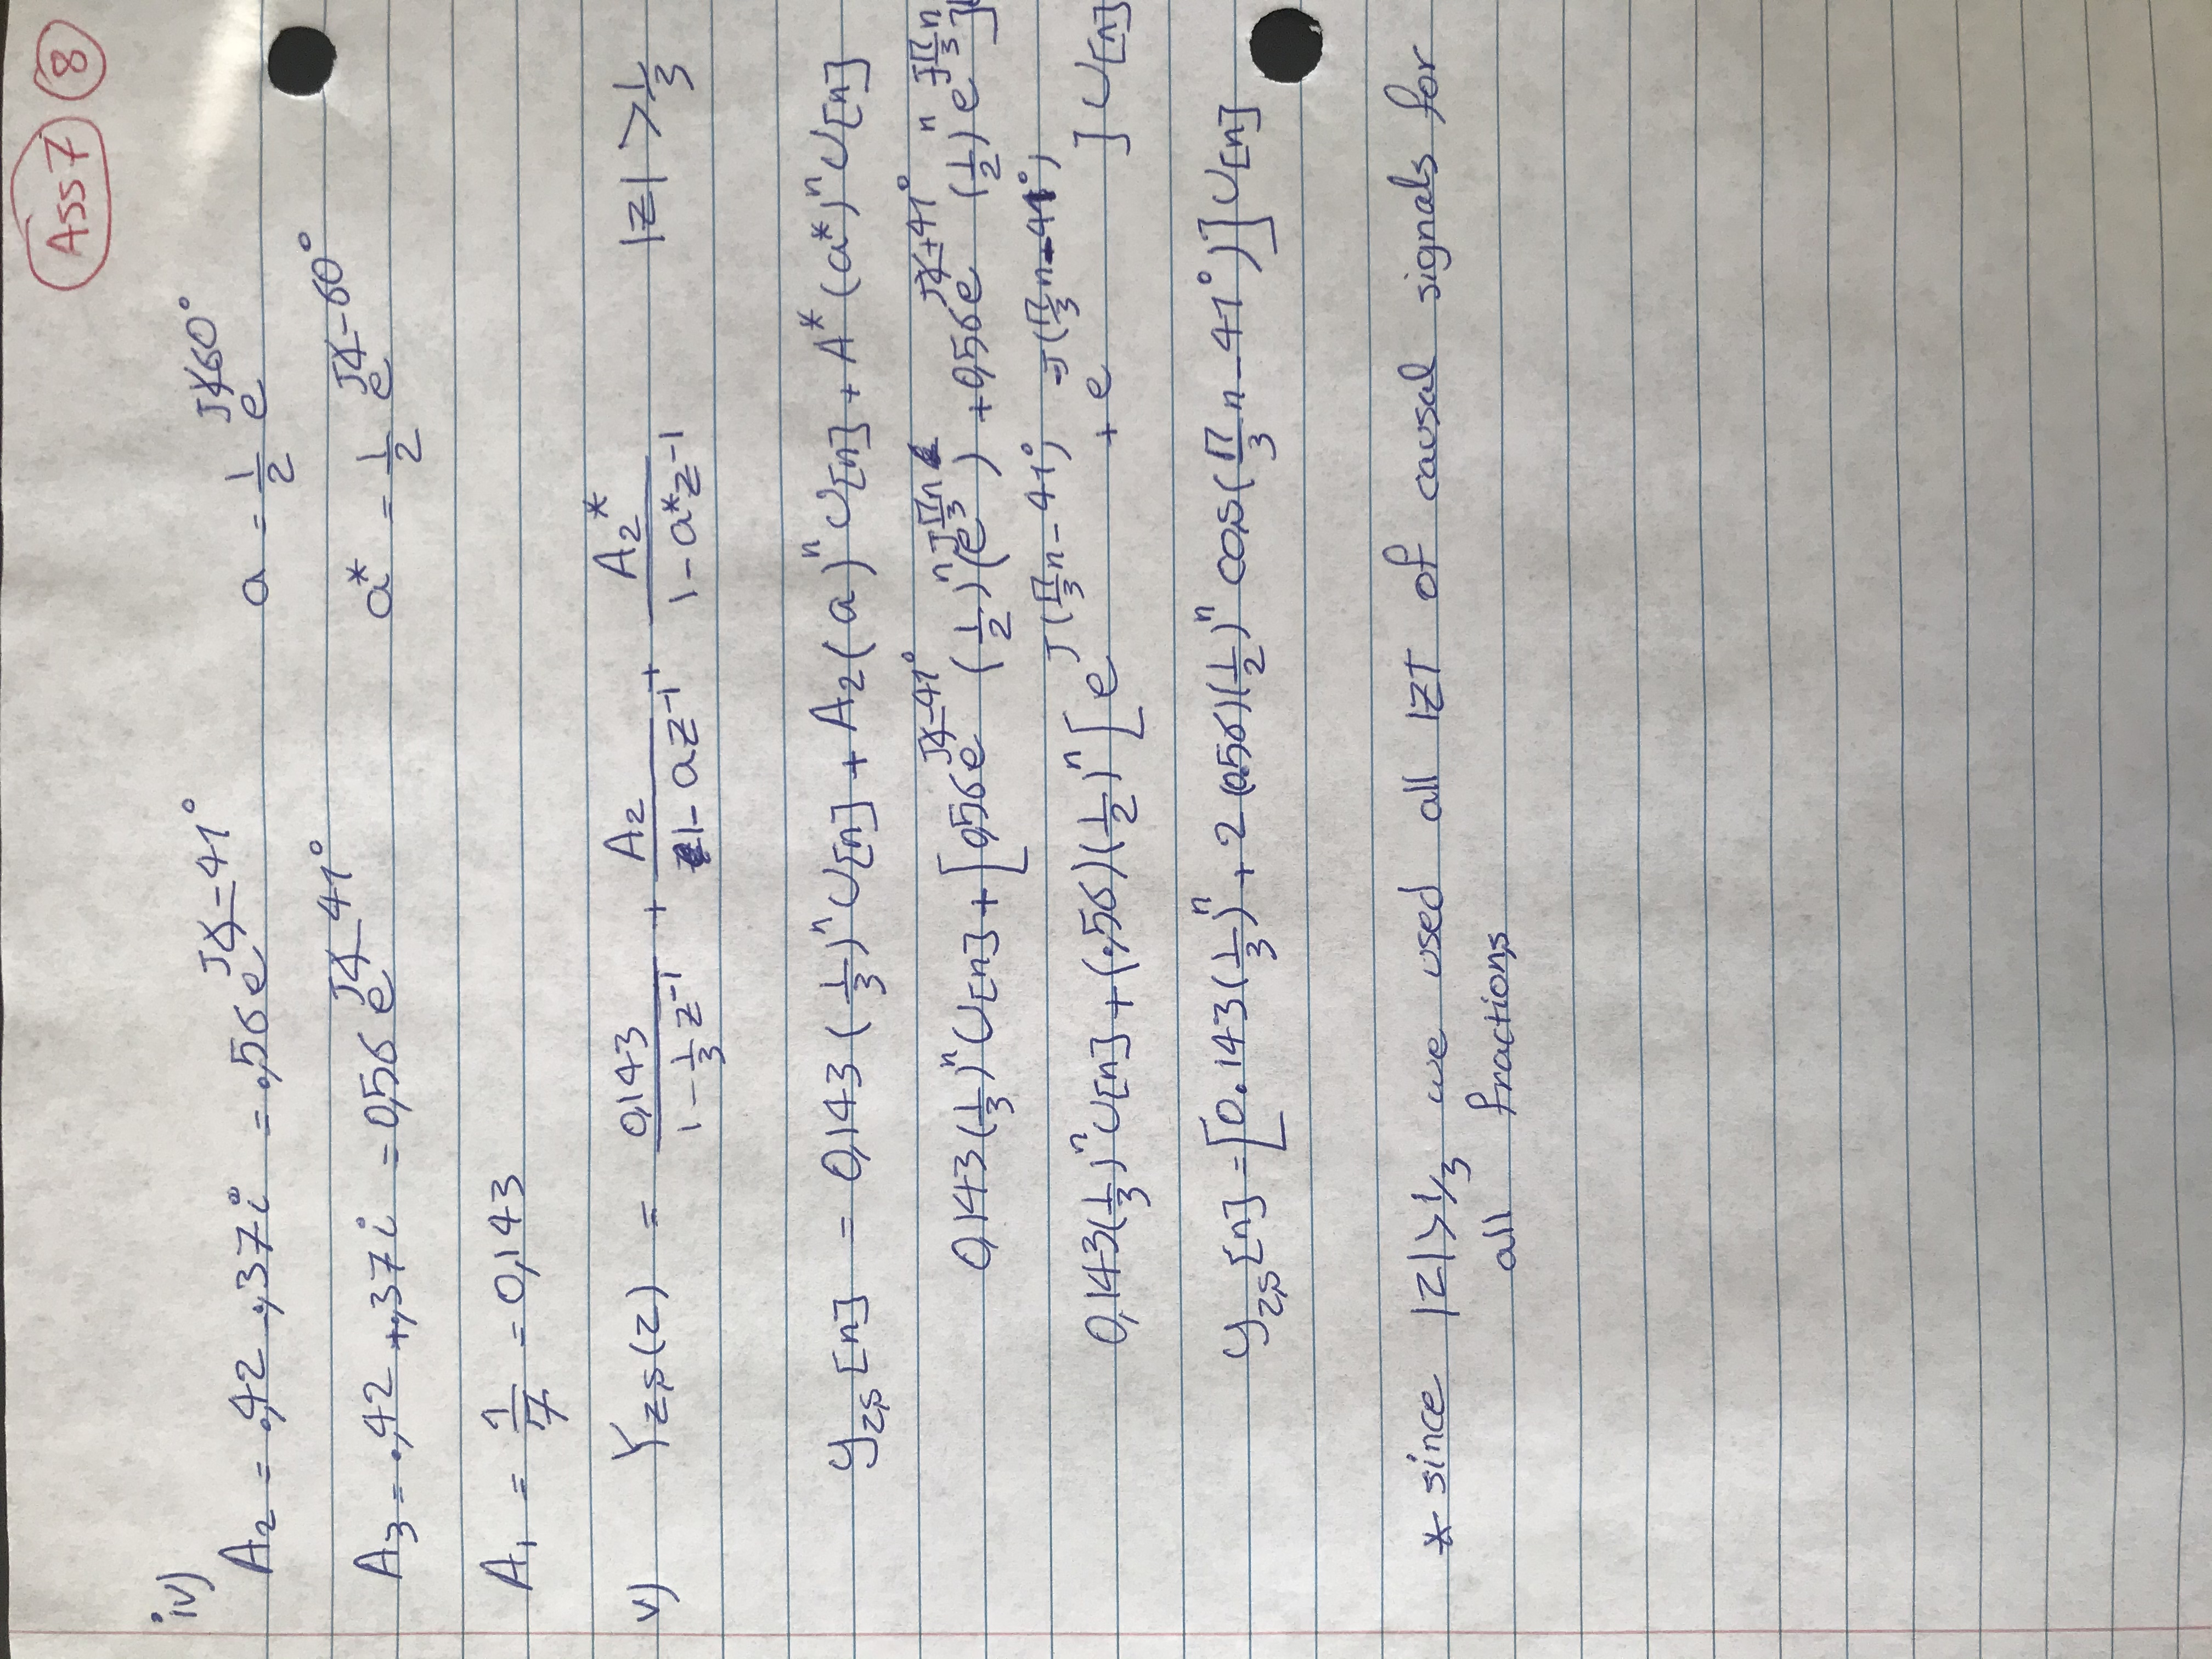 Ass7 8
iv)
A₂ = .42 -.37i = .56e^J∡-41° a = 1/2 e^J∡60°
A₃ = .42 +.37i = 0,56 e^J∡41° a* = 1/2 e^J∡-60°
A₁ = 1/7 = 0,143
v) Yzs(z) = 0,143/(1 - 1/3 z⁻¹) + A₂/(1 - az⁻¹) + A₂*/(1 - a*z⁻¹) |z| > 1/3
yzs[n] = 0,143 (1/3)ⁿ U[n] + A₂(a)ⁿ U[n] + A*(a*)ⁿ U[n]
0,143(1/3)ⁿ U[n] + [0,56e^J∡-41° (1/2)ⁿ(e^Jπ/3n) + 0,56e^J∡+41° (1/2)ⁿ e^Jπ/3n]
0,143(1/3)ⁿ U[n] + (.56)(1/2)ⁿ [e^J(π/3n - 41°) + e^-J(π/3n - 41°)] U[n]
yzs[n] = [0.143(1/3)ⁿ + 2(0.56)(1/2)ⁿ cos(π/3 n - 41°)] U[n]
* since |z|>1/3 we used all IZT of causal signals for
all fractions